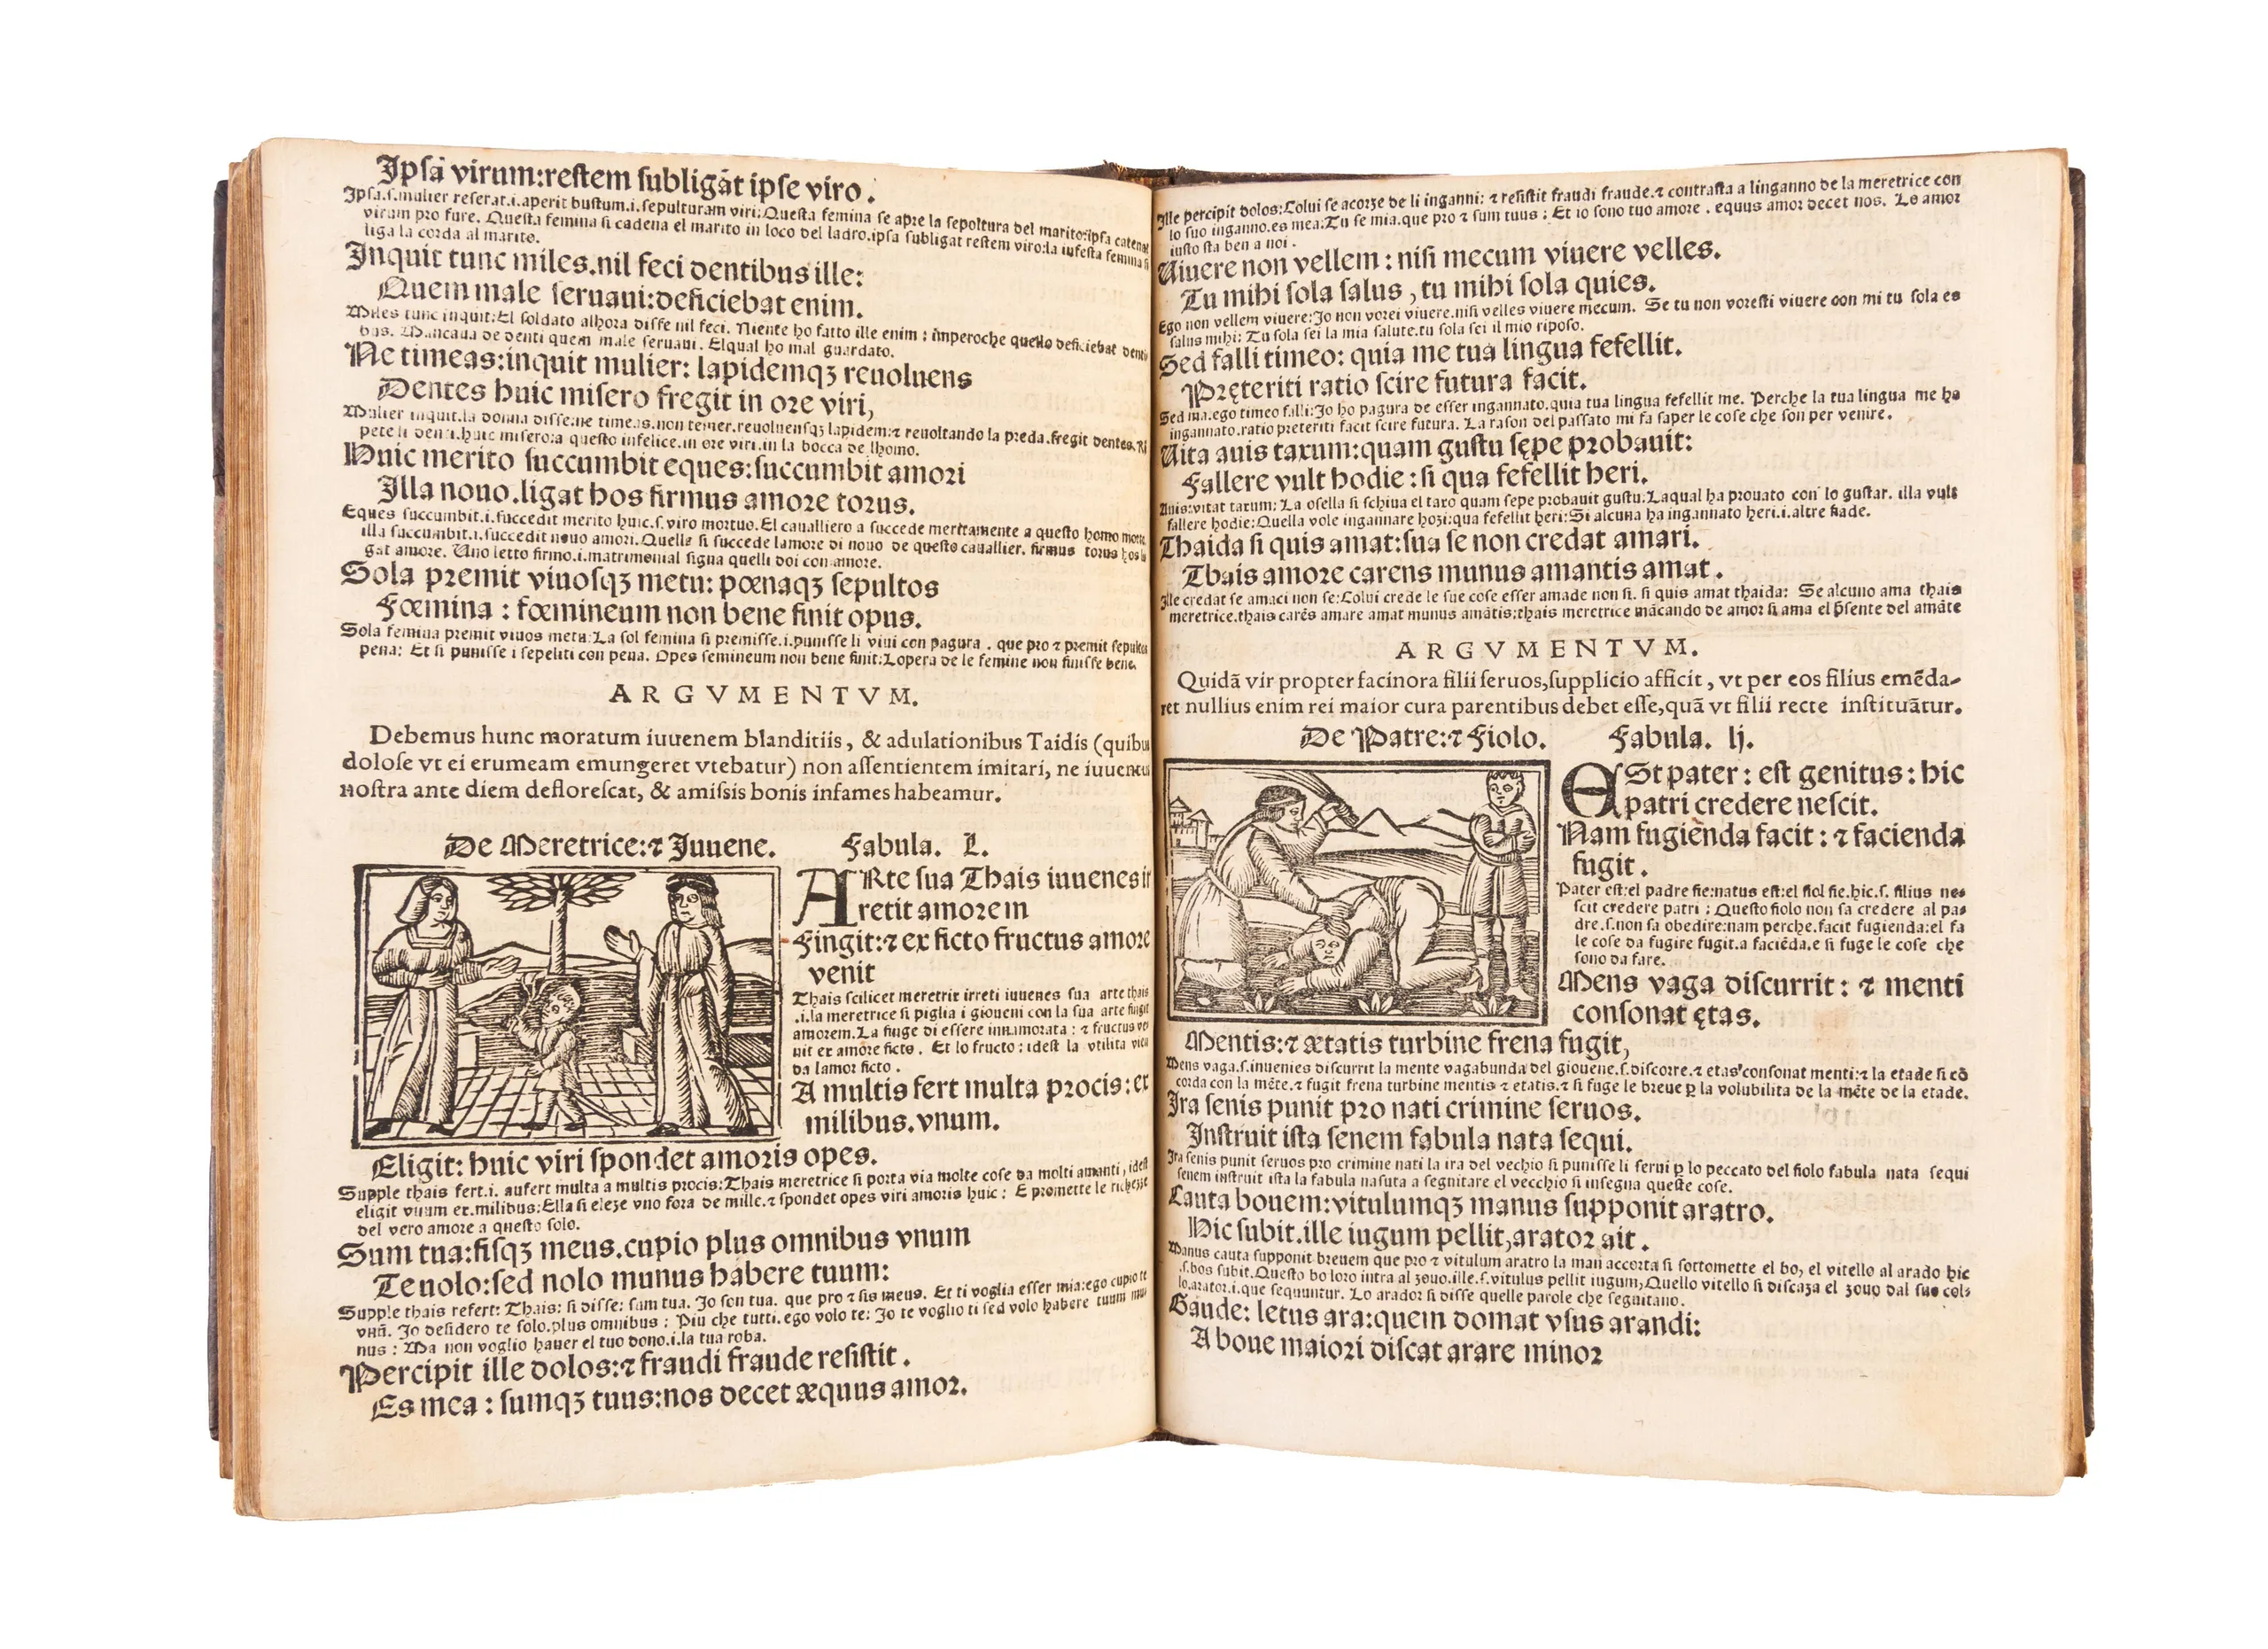 Ipsā virum:restem subligāt ipse viro.
Ipsa.s.mulier reserat.i.aperit bustum.i.sepulturam viri:Questa femina se apre la sepoltura del marito:ipsa catenat
virum pro fure. Questa femina si cadena el marito in loco del ladro.ipsa subligat restem viro:la infesta femina si
liga la corda al marito.
Inquit tunc miles.nil feci dentibus ille:
Quem male seruaui:deficiebat enim.
Miles tunc inquit:El soldato alhora disse nil feci. Niente ho fatto ille enim: imperoche quello deficiebat denti
bus. Mancaua de denti quem male seruaui. Elqual ho mal guardato.
Ne timeas:inquit mulier: lapidemqꝫ reuoluens
Dentes huic misero fregit in ore viri,
Mulier inquit.la donna disse:ne timeas.non temer.reuoluensqꝫ lapidem:⁊ reuoltando la preda.fregit dentes.Rō
pete li denti.huic misero:a questo infelice.in ore viri.in la bocca de lhomo.
Huic merito succumbit eques:succumbit amori
Illa nouo.ligat hos firmus amore torus.
Eques succumbit.i.succedit merito huic.s.viro mortuo.El caualliero a succede merttamente a questo homo morto
illa succumbit.i.succedit nouo amori.Quella si succede lamore di nouo de questo cauallier. firmus torus hos li
gat amore. Uno letto firmo.i.matrimonial signa quelli doi con amore.
Sola premit viuosqꝫ metu: pœnaqꝫ sepultos
Fœmina : fœmineum non bene finit opus.
Sola femina premit viuos metu:La sol femina si premisse.i.punisse li viui con pagura . que pro ⁊ premit sepultos
pena: Et si punisse i sepeliti con pena. Opes femineum non bene finit:Lopera de le femine non finisse bene.
ARGVMENTVM.
Debemus hunc moratum iuuenem blanditiis, & adulationibus Taidis (quibus
dolose vt ei erumeam emungeret vtebatur) non assentientem imitari, ne iuuentus
nostra ante diem deflorescat, & amissis bonis infames habeamur.
De Meretrice:⁊ Iuuene. Fabula. L.
ARte sua Thais iuuenes ir
retit amorem
Fingit:⁊ ex ficto fructus amore
venit
Thais scilicet meretrix irreti iuuenes sua arte thais
.i.la meretrice si piglia i gioueni con la sua arte fingit
amorem.La finge di essere innamorata : ⁊ fructus ve
nit ex amore ficto. Et lo fructo : idest la vtilita vien
da lamor ficto .
A multis fert multa procis: ex
milibus.vnum.
Eligit: huic viri spondet amoris opes.
Supple thais fert.i. aufert multa a multis procis:Thais meretrice si porta via molte cose da molti amanti, idest
eligit vnum ex.milibus:Ella si eleze vno fora de mille.⁊ spondet opes viri amoris huic : E promette le richezze
del vero amore a questo solo.
Sum tua:fisqꝫ meus.cupio plus omnibus vnum
Te uolo:sed nolo munus habere tuum:
Supple thais refert: Thais: si disse: sum tua. Io son tua. que pro ⁊ sis meus. Et ti voglia esser mia:ego cupio te
vnū. Io desidero te solo.plus omnibus : Piu che tutti.ego volo te: Io te voglio ti sed volo habere tuum mu
nus : Ma non voglio hauer el tuo dono.i.la tua roba.
Percipit ille dolos:⁊ fraudi fraude resistit.
Es mea : sumqꝫ tuus:nos decet æquus amor.
Ille percipit dolos:Colui se acorze de li inganni: ⁊ resistit fraudi fraude.⁊ contrasta a linganno de la meretrice con
lo suo inganno.es mea:Tu se mia.que pro ⁊ sum tuus : Et io sono tuo amore . equus amor decet nos. Lo amor
iusto sta ben a noi .
Uiuere non vellem : nisi mecum viuere velles.
Tu mihi sola salus, tu mihi sola quies.
Ego non vellem viuere:Io non vorei viuere.nisi velles viuere mecum. Se tu non voresti viuere con mi tu sola es
salus mihi: Tu sola sei la mia salute.tu sola sei il mio riposo.
Sed falli timeo: quia me tua lingua fefellit.
Pręteriti ratio scire futura facit.
Sed ma.ego timeo falli:Io ho pagura de esser ingannato.quia tua lingua fefellit me. Perche la tua lingua me ha
ingannato.ratio preteriti facit scire futura. La rason del passato mi fa saper le cose che son per venire.
Uita auis taxum:quam gustu sępe probauit:
Fallere vult hodie : si qua fefellit heri.
Auis:vitat taxum: La osella si schiua el taxo quam sepe probauit gustu:Laqual ha prouato con lo gustar. illa vult
fallere hodie:Quella vole ingannare hozi:qua fefellit heri:Si alcuna ha ingannato heri.i.altre fiade.
Thaida si quis amat:sua se non credat amari.
Thais amore carens munus amantis amat.
Ille credat se amaci non se:Colui crede le sue cose esser amade non si. si quis amat thaida: Se alcuno ama thais
meretrice.thais carēs amare amat munus amātis:thais meretrice mācando de amor si ama el p̄sente del amāte
ARGVMENTVM.
Quidā vir propter facinora filii seruos,supplicio afficit, vt per eos filius emēda-
ret nullius enim rei maior cura parentibus debet esse,quā vt filii recte instituātur.
De Patre:⁊ Fiolo. Fabula. lj.
ESt pater : est genitus : hic
patri credere nescit.
Nam fugienda facit : ⁊ facienda
fugit.
Pater est:el padre fie:natus est:el fiol fie.hic.s. filius ne=
scit credere patri : Questo fiolo non sa credere al pa=
dre.s.non sa obedire:nam perche.facit fugienda:el fa
le cose da fugire fugit.a faciēda.e si fuge le cose che
sono da fare.
Mens vaga discurrit : ⁊ menti
consonat ętas.
Mentis:⁊ ætatis turbine frena fugit,
Mens vaga.s.inuenies discurrit la mente vagabunda del giouene.s.discorre.⁊ etas consonat menti:⁊ la etade si cō
corda con la mēte.⁊ fugit frena turbine mentis ⁊ etatis.⁊ si fuge le breue p̱ la volubilita de la mēte de la etade.
Ira senis punit pro nati crimine seruos.
Instruit ista senem fabula nata sequi.
Ira senis punit seruos pro crimine nati la ira del vechio si punisse li serui p̱ lo peccato del fiolo fabula nata sequi
senem instruit ista la fabula nasuta a segnitare el vecchio si insegna queste cose.
Cauta bouem:vitulumqꝫ manus supponit aratro.
Hic subit.ille iugum pellit,arator ait.
Manus cauta supponit breuem que pro ⁊ vitulum aratro la man accorta si sottomette el bo, el vitello al arado hic
.s.bos subit.Questo bo loro intra al zouo.ille.s.vitulus pellit iugum,Quello vitello si discaza el zouo dal suo col=
lo.arator.i.que sequuntur. Lo arador si disse quelle parole che seguitano.
Gaude: letus ara:quem domat vsus arandi:
A boue maiori discat arare minor